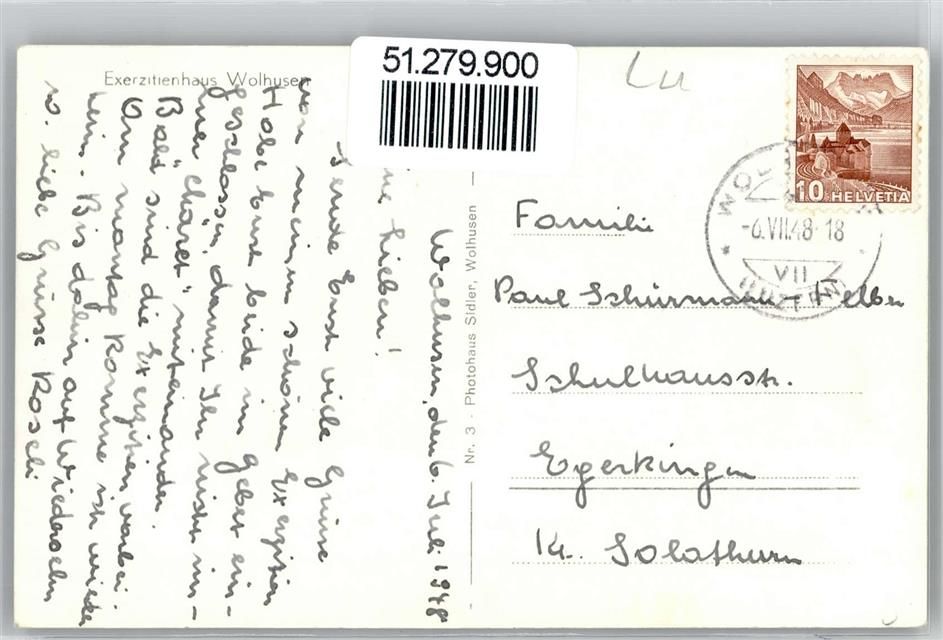 51.279.900
Exerzitienhaus Wolhusen
Lu
Wolhusen, den 6. Juli 1948
Lieben!
Sende Euch viele Grüsse
von meinen schönen Exerzitien
Habe Euch beide im Gebet ein-
geschlossen, damit Ihr nicht im-
mer „chäret" miteinander.
Bald sind die Exerzitien vorbei.
Am montag komme ich wieder
heim. Bis dahin auf Wiedersehn
u. liebe Grüsse Roseli
Nr. 3 - Photohaus Sidler, Wolhusen
10 HELVETIA
-6.VII.48-18
VII
(LUZERN)
Familie
Paul Schürmann-Felber
Schulhausstr.
Egerkingen
Kt. Solothurn